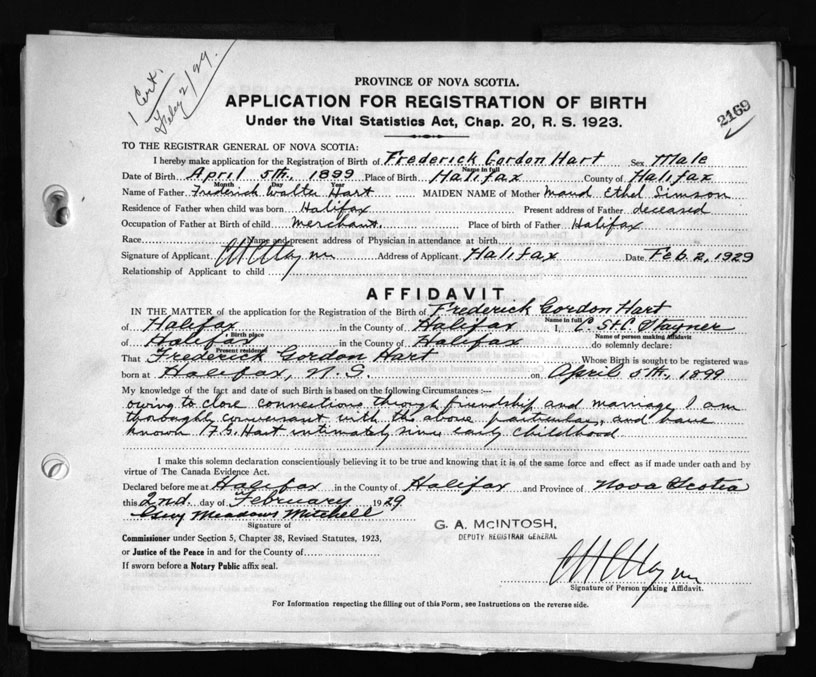 1 Cert.
Feby 2/29
PROVINCE OF NOVA SCOTIA.
APPLICATION FOR REGISTRATION OF BIRTH
Under the Vital Statistics Act, Chap. 20, R. S. 1923.
2169
TO THE REGISTRAR GENERAL OF NOVA SCOTIA:
I hereby make application for the Registration of Birth of Frederick Gordon Hart Sex Male
Name in full
Date of Birth April 5th, 1899 Place of Birth Halifax County of Halifax
Month Day Year
Name of Father Frederick Walter Hart MAIDEN NAME of Mother Maud Ethel Simson
Residence of Father when child was born Halifax Present address of Father deceased
Occupation of Father at Birth of child Merchant. Place of birth of Father Halifax
Race Name and present address of Physician in attendance at birth
Signature of Applicant Address of Applicant Halifax Date Feb. 2, 1929
Relationship of Applicant to child
AFFIDAVIT
IN THE MATTER of the application for the Registration of the Birth of Frederick Gordon Hart
Name in full
of Halifax in the County of Halifax I, C. St C. Stayner
Birth place Name of person making Affidavit
of Halifax in the County of Halifax do solemnly declare:
Present residence
That Frederick Gordon Hart Whose Birth is sought to be registered was
born at Halifax, N.S. on April 5th, 1899
My knowledge of the fact and date of such Birth is based on the following Circumstances :—
owing to close connections through friendship and marriage I am
thoroughly conversant with the above particulars, and have
known F. G. Hart intimately since early childhood
I make this solemn declaration conscientiously believing it to be true and knowing that it is of the same force and effect as if made under oath and by
virtue of The Canada Evidence Act.
Declared before me at Halifax in the County of Halifax and Province of Nova Scotia
this 2nd. day of February 1929
Guy Meadows Mitchell
Signature of
G. A. McINTOSH,
DEPUTY REGISTRAR GENERAL
Commissioner under Section 5, Chapter 38, Revised Statutes, 1923,
or Justice of the Peace in and for the County of
If sworn before a Notary Public affix seal.
Signature of Person making Affidavit.
For Information respecting the filling out of this Form, see Instructions on the reverse side.